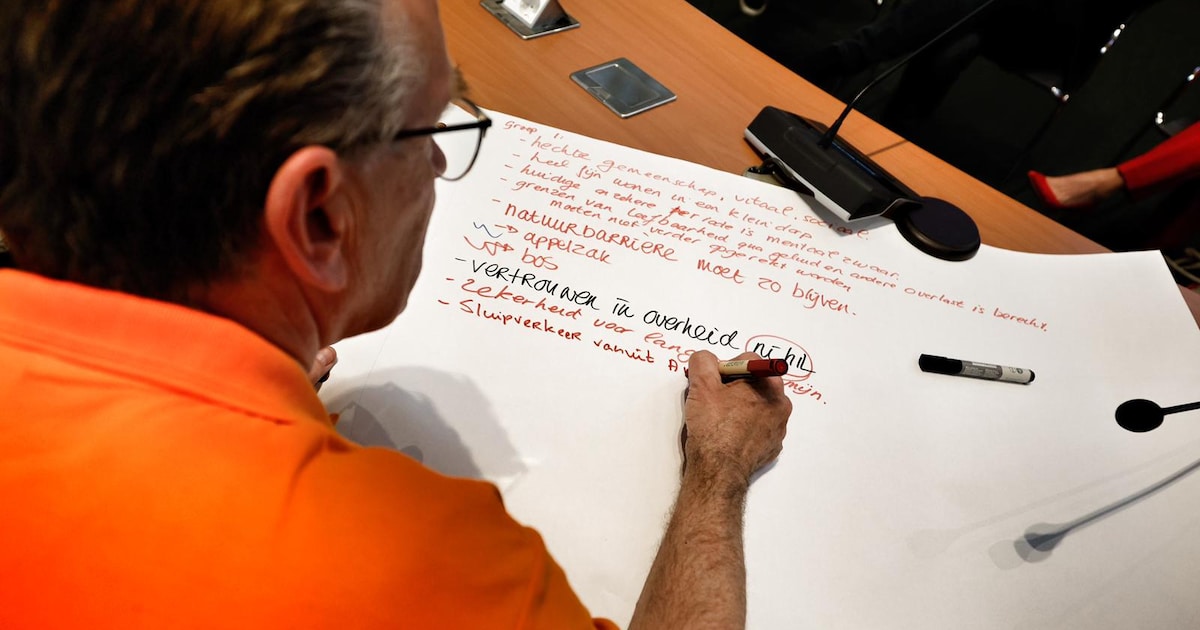 Groep 1.
- hechte gemeenschap, vitaal, sociaal.
- heel fijn wonen in een klein dorp
- huidige onzekere periode is mentaal zwaar.
- grenzen van leefbaarheid qua geluid en andere overlast is bereikt,
moeten niet verder opgerekt worden
- natuurbarriere moet zo blijven.
appelzak
bos
- Vertrouwen in overheid nihil
- Zekerheid voor lange mijn.
- Sluipverkeer vanuit A